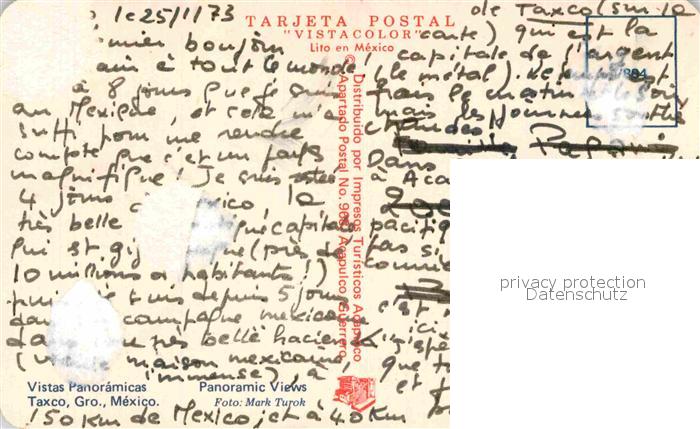 le 25/1/73
TARJETA POSTAL
"VISTACOLOR"
Lito en México
mier boujou
ami à tout le monde!
à 8 jours que je suis
au Mexique, et cela m'a
suffi pour me rendre
compte que c'est un pays
magnifique! Je suis
4 jours à Mexico, la
très belle capitale
qui est gi que (près de
10 millions d'habitants!)
suis depuis 5 jours
dans campagne mexicaine
dans une très belle hacienda
( maison mexicaine,
immense), à
150 Km de Mexico, et à 40 Km
de Taxco (sur la
carte) qui est la
capitale de l'argent
(le métal). Le temps est
frais le matin et le soir
mais les journées sont
Dans
à Aca
pacifiq
pas si
c'est
ici
que
et
© Distribuido por Impresos Turísticos Acapulco
Apartado Postal No. 968 Acapulco Guerrero
Vistas Panorámicas
Taxco, Gro., México.
Panoramic Views
Foto: Mark Turok
privacy protection
Datenschutz